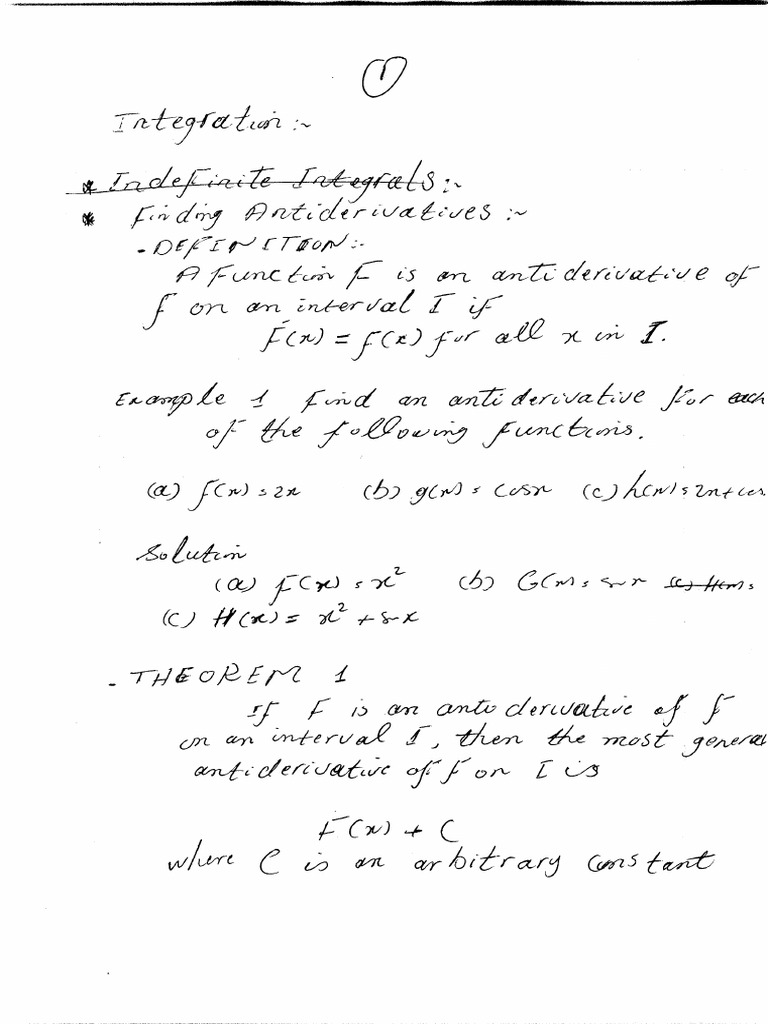 1
Integration :~
* Indefinite Integrals :~
* Finding Antiderivatives :~
- DEFINITION :-
A Function F is an antiderivative of
f on an interval I if
F'(x) = f(x) for all x in I.
Example 1 Find an antiderivative for each
of the following functions.
(a) f(x) = 2x (b) g(x) = cosx (c) h(x) = 2x + cos
Solution
(a) F(x) = x² (b) G(x) = sin x (c) H(x) =
(c) H(x) = x² + sin x
- THEOREM 1
If F is an antiderivative of f
on an interval I, then the most general
antiderivative of f on I is
F(x) + C
where C is an arbitrary constant